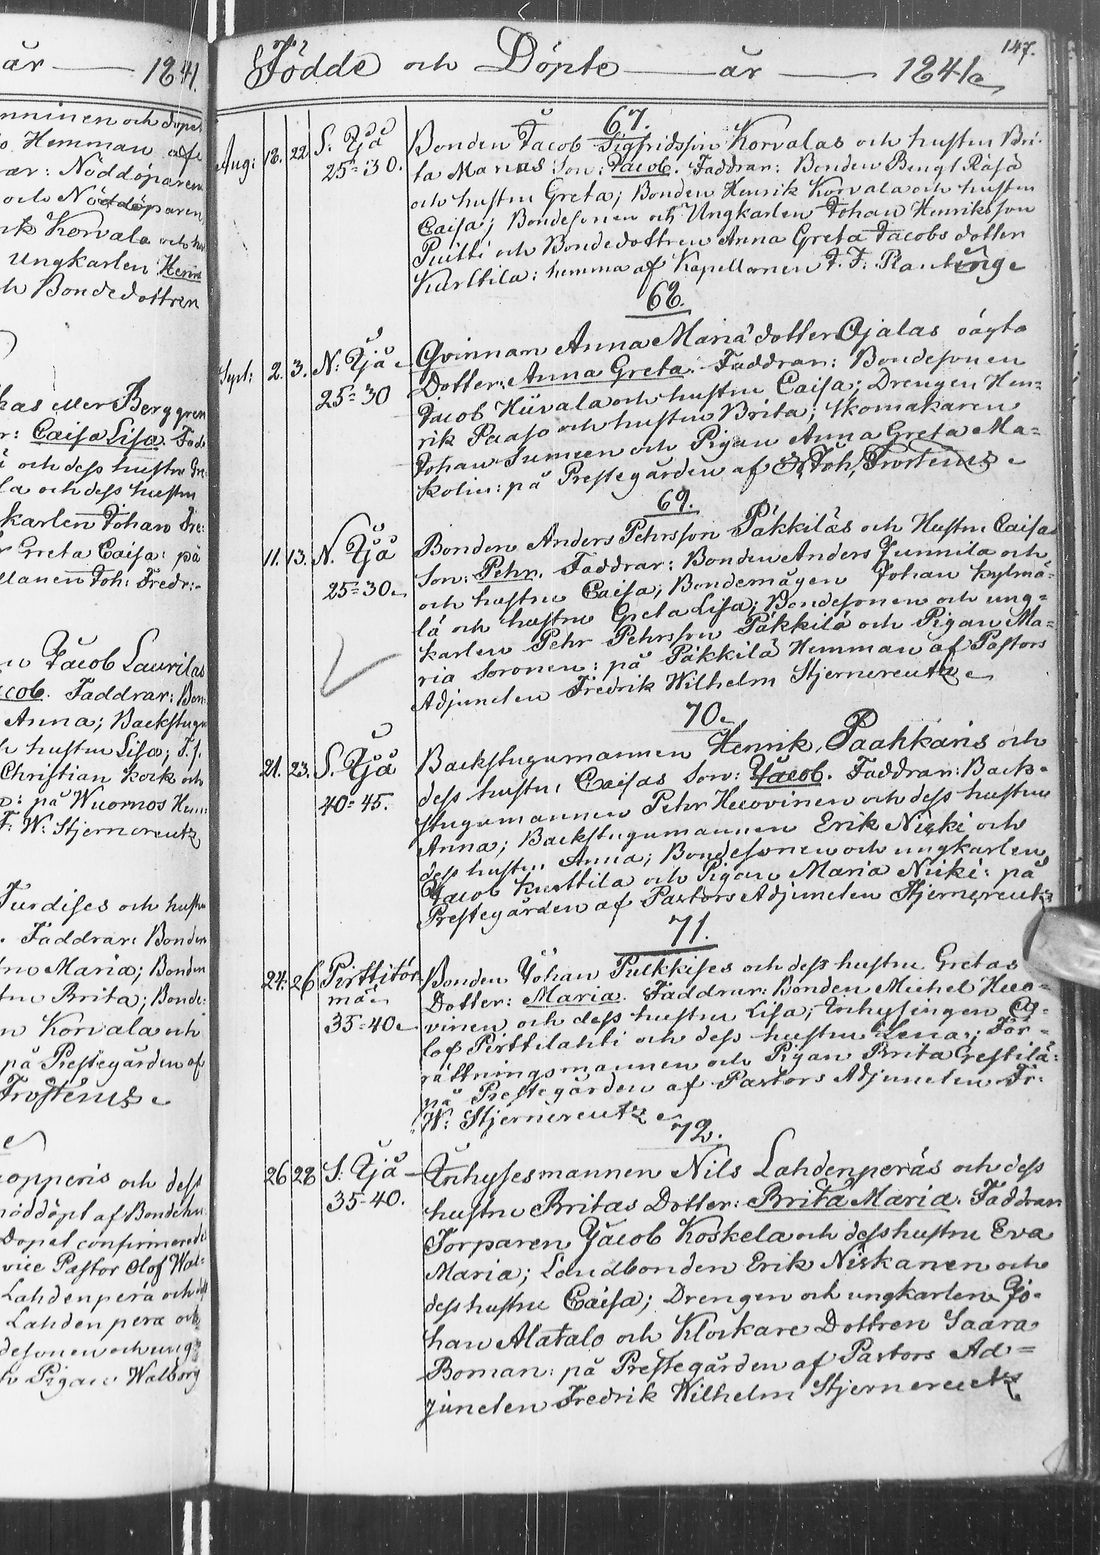 år — 1841.
nninen och döpet
o Hemman af
rar: Nöddöparen
och Nöddöparen
rik Korvala och hu
Ungkarlen Henri
h Bondedottren
kas eller Berggren
r: Caisa Lisa. Fad
i och dess hustru
la och dess hustru
karlen Johan
r Greta Caisa: på
llanen Joh: Fredr:
n Jacob Laurilas
cob. Faddrar: Bon
Anna; Backstugu
h hustru Lisa;
Christian Kock och
på Wuornos Hem
F: W: Stjernereutz
Turdises och hustru
. Faddrar: Bonden
tru Maria; Bonden
tru Brita; Bonde:
n Korvala och
på Prestegården af
Frosterus
opperis och dess
nöddöpt af Bondehu
Dopet confirmeredt
vice Pastor Olof Wal
Lahdenperä och dess
Lahdenperä och
desonen och ung
h Pigan Walborg
147.
Födde och Döpte — år — 1841.
67.
Aug: 18. 22. S. Ijå 25-30.
Bonden Jacob Sigfridsson Korvalas och hustru Bri-
ta Marias Son: Jacob. Faddrar: Bonden Bengt Räisä
och hustru Greta; Bonden Henrik Korvala och hustru
Caisa; Bondesonen och Ungkarlen Johan Henriksson
Puitti och Bondedottren Anna Greta Jacobs dotter
Kurttila: hemma af Kapellanen J. F. Planting
68.
Sept: 2. 3. N: Ijå 25-30
Qvinnan Anna Maria dotter Ojalas oägta
Dotter: Anna Greta. Faddrar: Bondesonen
Jacob Hiivala och hustru Caisa; Drengen Hen-
rik Paaso och hustru Brita; Skomakaren
Johan Sumeen och Pigan Anna Greta Ma-
kolin: på Prestegården af Joh, Frosterus
69.
11. 13. N. Ijå 25-30
Bonden Anders Pehrsson Päkkiläs och Hustru Caisas
Son: Pehr. Faddrar: Bonden Anders Junnila och
och hustru Caisa; Bondemågen Johan Kylmä-
lä och hustru Greta Lisa; Bondesonen och ung-
karlen Pehr Pehrsson Päkkilä och Pigan Ma-
ria Soronen: på Päkkilä Hemman af Pastors
Adjuncten Fredrik Wilhelm Stjernereutz
70.
21. 23. S. Ijå 40-45.
Backstugumannen Henrik Paahkaris och
dess hustru Caisas Son: Jacob. Faddrar: Back-
stugumannen Pehr Heevinen och dess hustru
Anna; Backstugumannen Erik Niski och
dess hustru Anna; Bondesonen och ungkarlen
Jacob Kurttila och Pigan Maria Niski: på
Prestegården af Pastors Adjuncten Stjernereutz
71.
24. 26 Perttitörmä 35-40
Bonden Johan Pulkkises och dess hustru Gretas
Dotter: Maria. Faddrar: Bonden Michel Heeo-
vinen och dess hustru Lisa; Inhysingen O-
lof Perttilahti och dess hustru Lena; För-
rättningsmannen och Pigan Brita Erestilä:
på Prestegården af Pastors Adjuncten Fr:
W: Stjernereutz
72.
26 28 S. Ijå 35-40.
Inhysesmannen Nils Lahdenperäs och dess
hustru Britas Dotter: Brita Maria. Faddrar
Torparen Jacob Koskela och dess hustru Eva
Maria; Landbonden Erik Niskanen och
dess hustru Caisa; Drengen och ungkarlen Jo-
han Alatalo och Klockare Dottren Saara
Boman: på Prestegården af Pastors Ad=
juncten Fredrik Wilhelm Stjernereutz